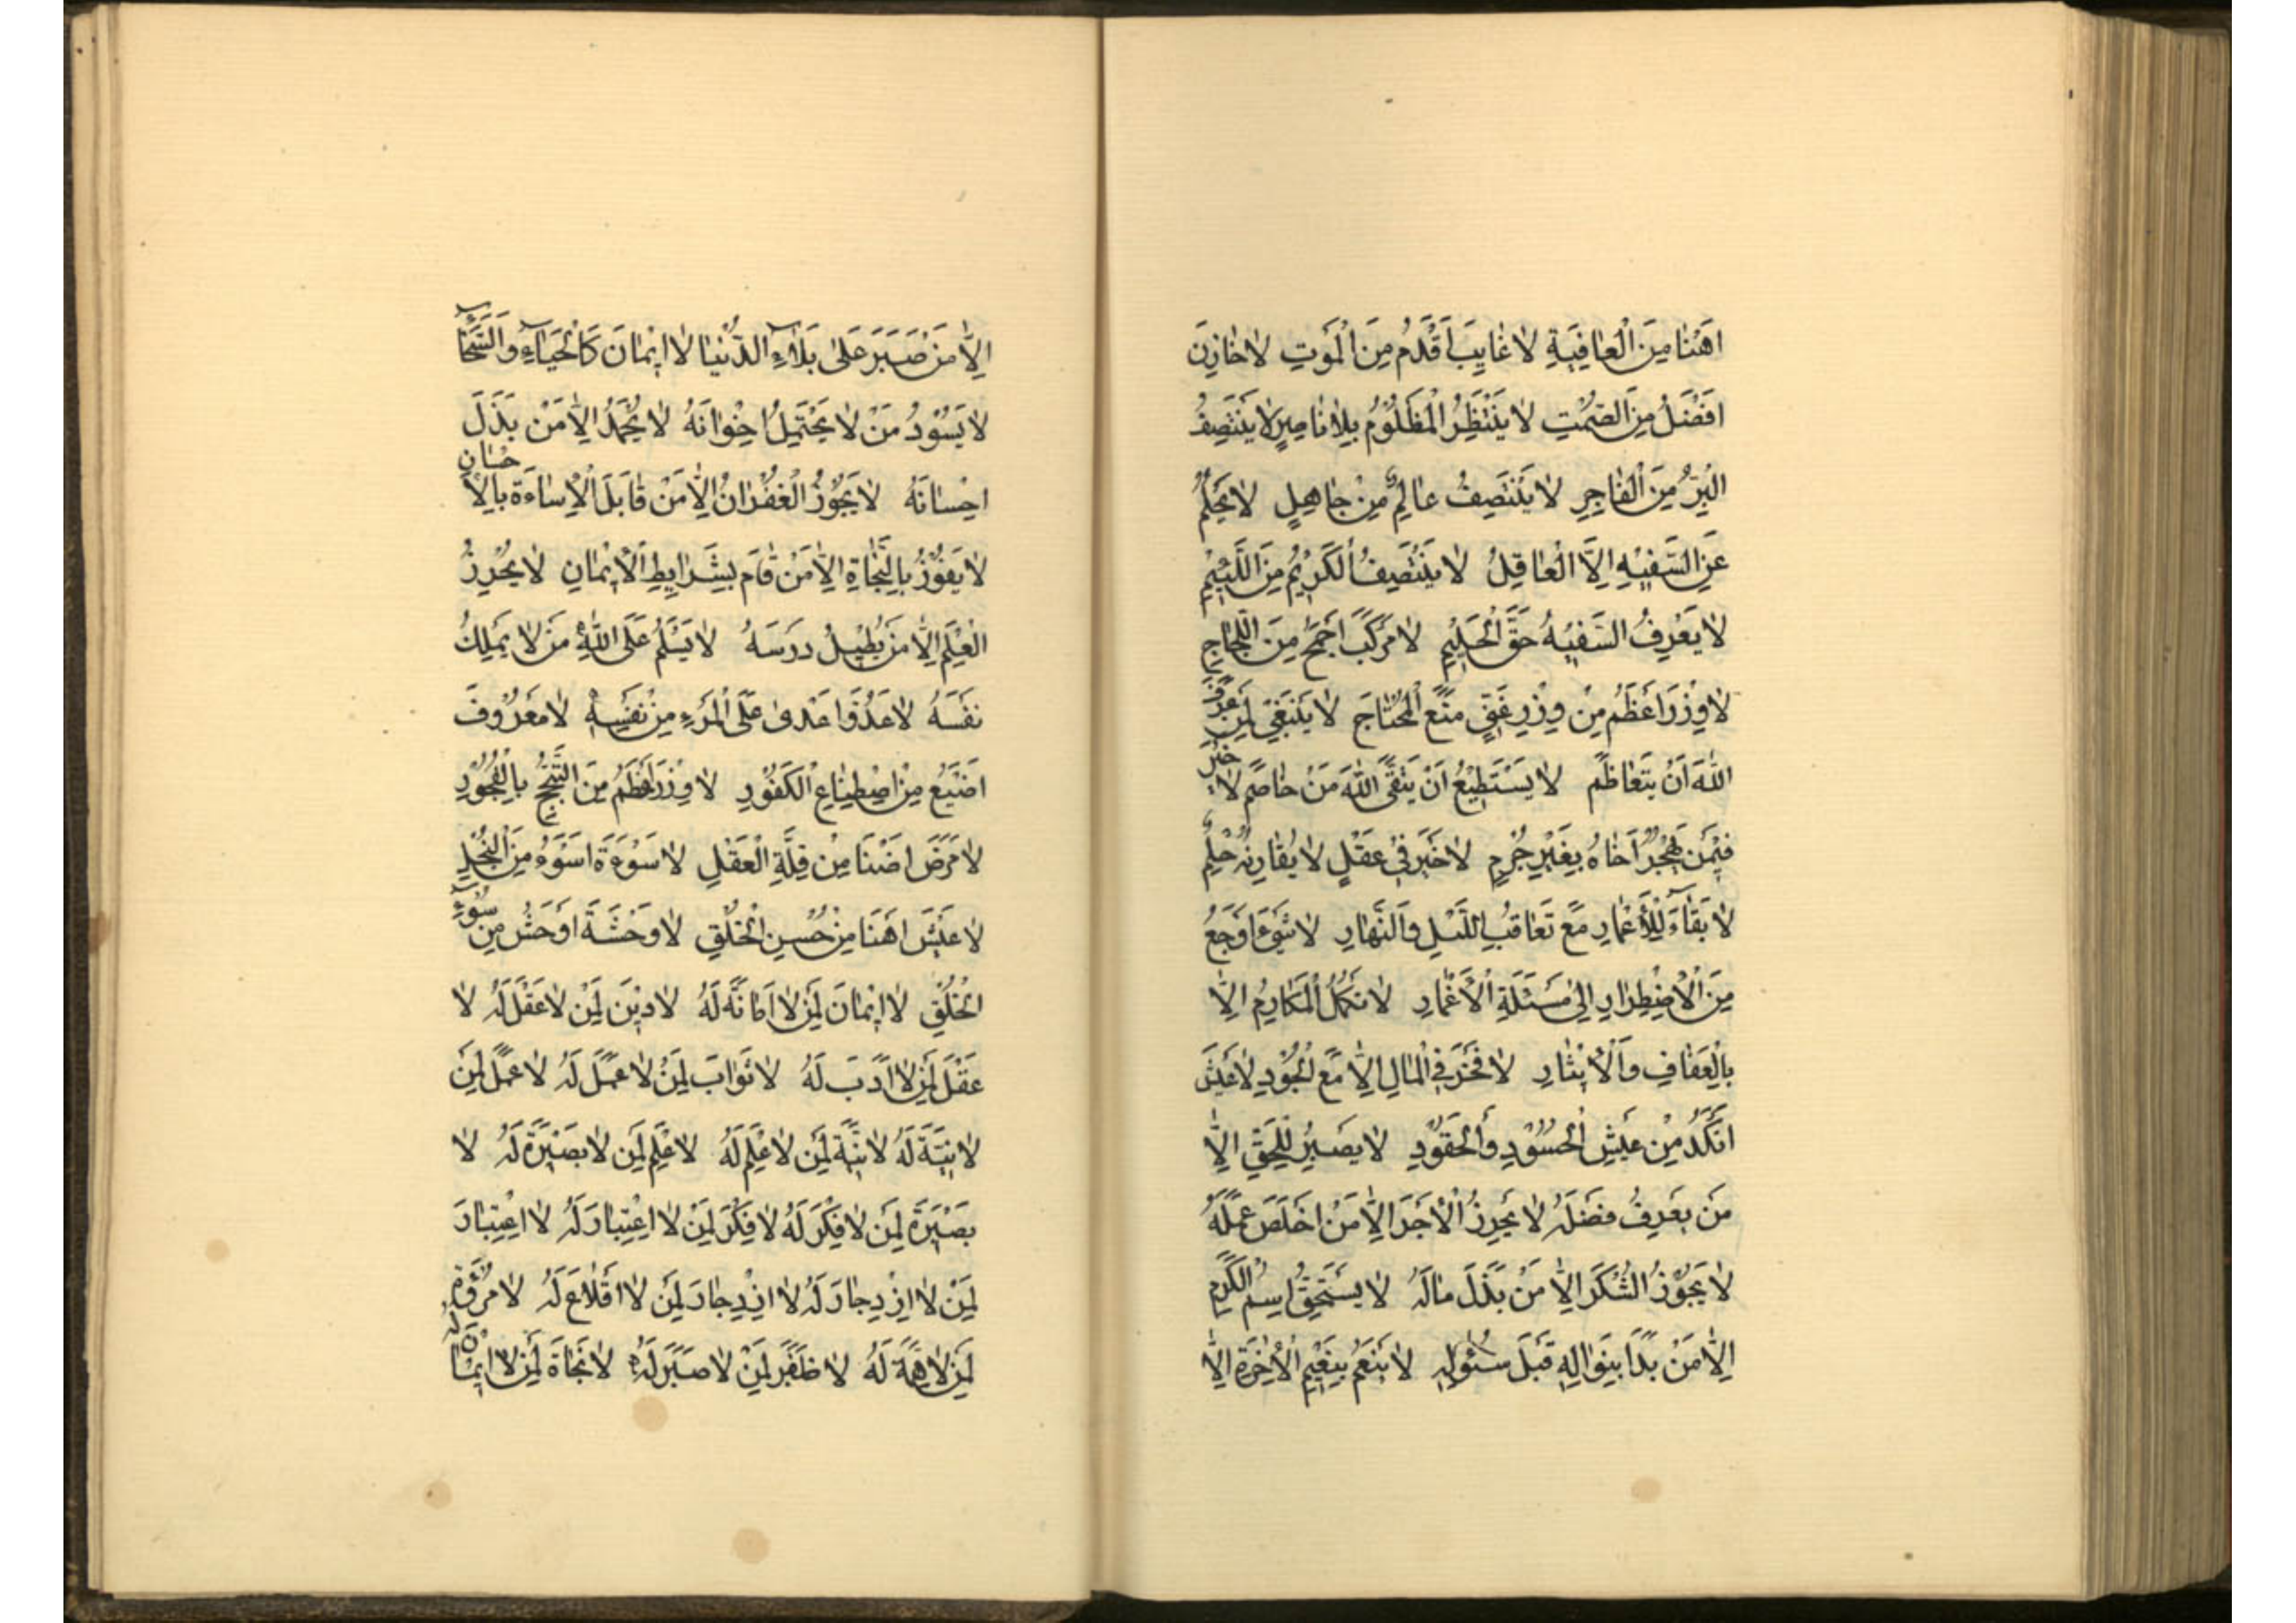 اَهْنَا مِنَ الْعَافِيَةِ لَا غَايِبَ اَقْدَمُ مِنَ الْمَوْتِ لَا خَازِنَ
اَفْضَلُ مِنَ الصَّمْتِ لَا يَنْتَظِرُ الْمَظْلُوْمُ بِلَا نَاصِرٍ لَا يَنْتَصِفُ
الْبِرُّ مِنَ الْفَاجِرِ لَا يَنْتَصِفُ عَالِمٌ مِنْ جَاهِلٍ لَا يَحْلُمُ
عَنِ السَّفِيْهِ اِلَّا الْعَاقِلُ لَا يَنْتَصِفُ الْكَرِيْمُ مِنَ اللَّئِيْمِ
لَا يَعْرِفُ السَّفِيْهُ حَقَّ الْحَلِيْمِ لَا مَرْكَبَ اَجْمَحُ مِنَ اللَّجَاجِ
لَا وِزْرَ اَعْظَمُ مِنْ وِزْرِ غَنِيٍّ مَنَعَ الْمُحْتَاجَ لَا يَنْبَغِيْ لِمَنْ عَرَفَ
اللّٰهَ اَنْ يَتَعَاظَمَ لَا يَسْتَطِيْعُ اَنْ يَتَّقَى اللّٰهَ مَنْ خَاصَمَ لَا خَيْرَ
فِيْمَنْ يَهْجُرُ اَخَاهُ بِغَيْرِ جُرْمٍ لَا خَيْرَ فِيْ عَقْلٍ لَا يُقَارِنُهُ حِلْمٌ
لَا بَقَاءَ لِلْاَعْمَارِ مَعَ تَعَاقُبِ اللَّيْلِ وَالنَّهَارِ لَا شَيْءَ اَوْجَعُ
مِنَ الْاِضْطِرَارِ اِلٰى مَسْئَلَةِ الْاَغْمَارِ لَا تَكْمُلُ الْمَكَارِمُ اِلَّا
بِالْعَفَافِ وَالْاِيْثَارِ لَا فَخْرَ فِي الْمَالِ اِلَّا مَعَ الْجُوْدِ لَا عَيْشَ
اَنْكَدُ مِنْ عَيْشِ الْحَسُوْدِ وَالْحَقُوْدِ لَا يَصْبِرُ لِلْحَقِّ اِلَّا
مَنْ يَعْرِفُ فَضْلَهُ لَا يُحْرِزُ الْاَجْرَ اِلَّا مَنْ اَخْلَصَ عَمَلَهُ
لَا يَجُوْزُ الشُّكْرَ اِلَّا مَنْ بَذَلَ مَالَهُ لَا يَسْتَحِقُّ اسْمَ الْكَرَمِ
اِلَّا مَنْ بَدَا بِنَوَالِهِ قَبْلَ سُئُوالِهِ لَا يَنْعَمُ بِنَعِيْمِ الْاٰخِرَةِ اِلَّا
اِلَّا مَنْ صَبَرَ عَلٰى بَلَاءِ الدُّنْيَا لَا اِيْمَانَ كَالْحَيَاءِ وَالسَّخَاءِ
لَا يَسُوْدُ مَنْ لَا يَحْتَمِلُ اِخْوَانَهُ لَا يُحْمَدُ اِلَّا مَنْ بَذَلَ
اِحْسَانَهُ لَا يَجُوْزُ الْغُفْرَانُ اِلَّا مَنْ قَابَلَ الْاِسَاءَةَ بِالْاِحْسَانِ
لَا يَفُوْزُ بِالنَّجَاةِ اِلَّا مَنْ قَامَ بِشَرَايِطِ الْاِيْمَانِ لَا يُحْرِزُ
الْعِلْمَ اِلَّا مَنْ يُطِيْلُ دَرْسَهُ لَا يَسْلَمُ عَلَى اللّٰهِ مَنْ لَا يَمْلِكُ
نَفْسَهُ لَا عَدُوَّ اَعْدٰى عَلَى الْمَرْءِ مِنْ نَفْسِهِ لَا مَعْرُوْفَ
اَضْيَعُ مِنْ اِصْطِنَاعِ الْكَفُوْرِ لَا وِزْرَ اَعْظَمُ مِنَ التَّبَجُّحِ بِالْفُجُوْرِ
لَا مَرَضَ اَضْنَا مِنْ قِلَّةِ الْعَقْلِ لَا سَوْءَةَ اَسْوَءُ مِنَ الْبُخْلِ
لَا عَيْشَ اَهْنَا مِنْ حُسْنِ الْخُلْقِ لَا وَحْشَةَ اَوْحَشُ مِنْ سُوْءِ
الْخُلُقِ لَا اِيْمَانَ لِمَنْ لَا اَمَانَةَ لَهُ لَا دِيْنَ لِمَنْ لَا عَقْلَ لَهُ لَا
عَقْلَ لِمَنْ لَا اَدَبَ لَهُ لَا ثَوَابَ لِمَنْ لَا عَمَلَ لَهُ لَا عَمَلَ لِمَنْ
لَا نِيَّةَ لَهُ لَا نِيَّةَ لِمَنْ لَا عِلْمَ لَهُ لَا عِلْمَ لِمَنْ لَا بَصِيْرَةَ لَهُ لَا
بَصِيْرَةَ لِمَنْ لَا فِكْرَ لَهُ لَا فِكْرَ لِمَنْ لَا اعْتِبَارَ لَهُ لَا اعْتِبَارَ
لِمَنْ لَا ازْدِجَارَ لَهُ لَا ازْدِجَارَ لِمَنْ لَا اِقْلَاعَ لَهُ لَا مُرُوَّةَ
لِمَنْ لَا هِمَّةَ لَهُ لَا ظَفَرَ لِمَنْ لَا صَبْرَ لَهُ لَا نَجَاةَ لِمَنْ لَا اِيْمَانَ لَهُ